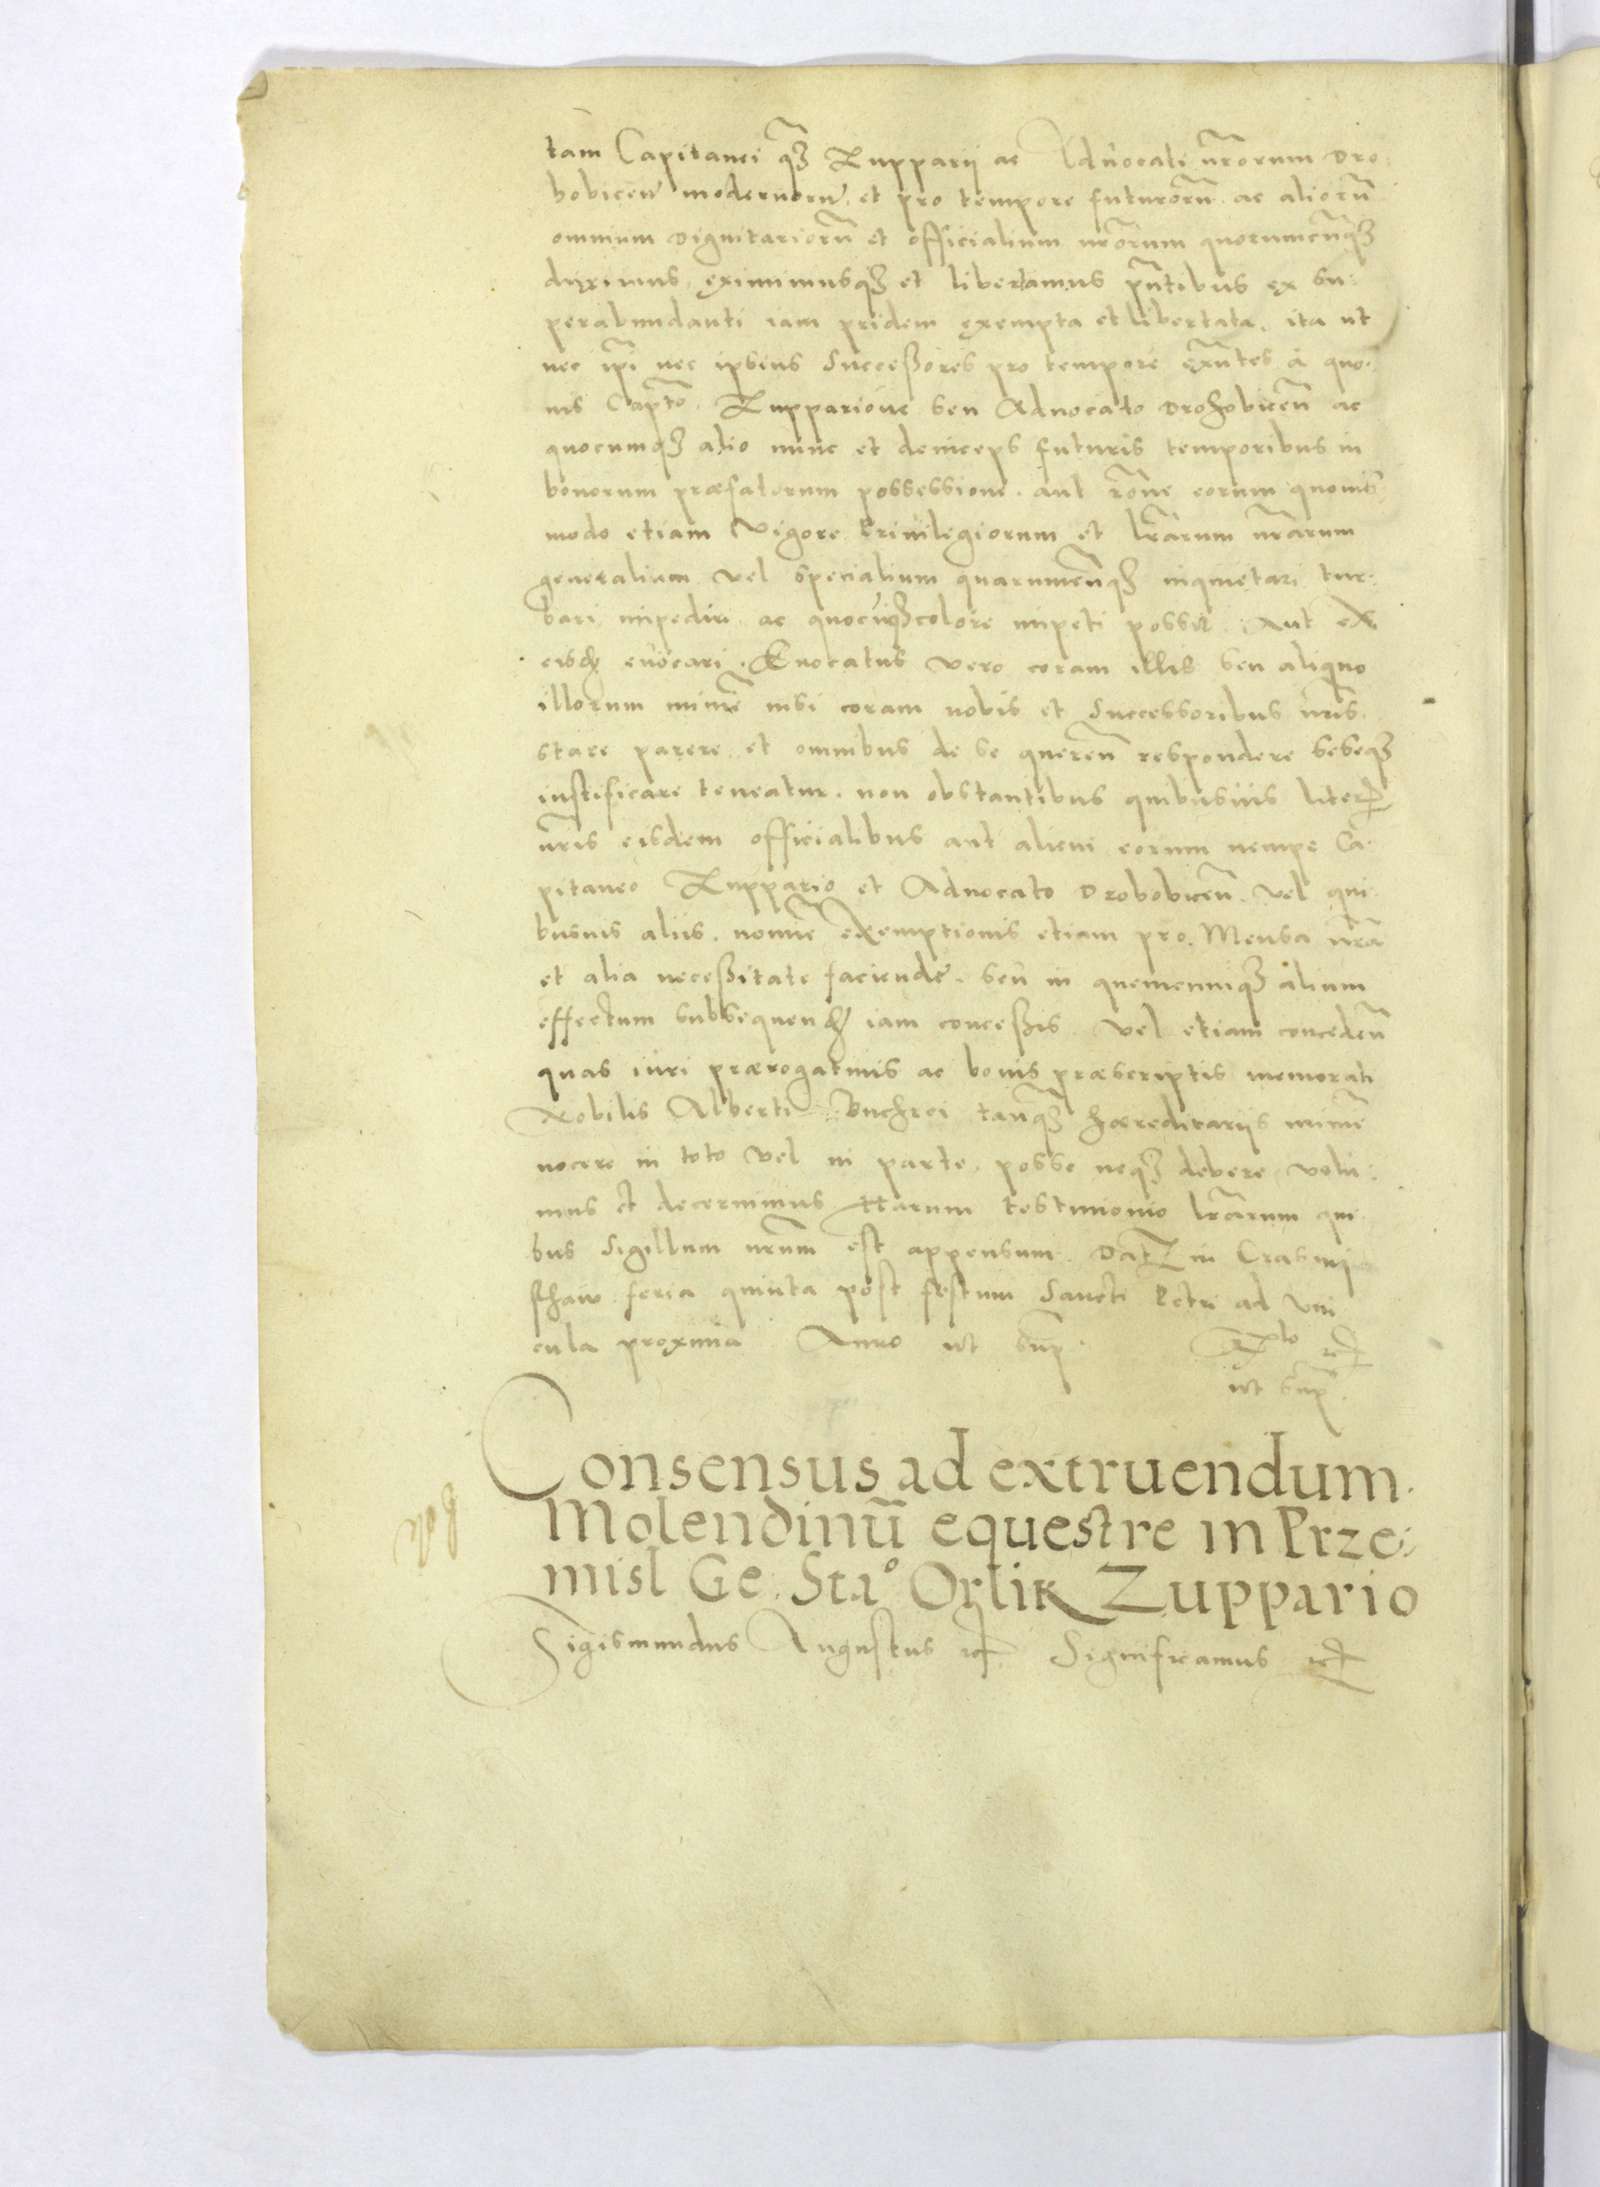 tam Capitanei qꝫ Zupparii ac Aduocati nr̄orum Dro
hobicen̄ modernorū et pro tempore futurorū ac aliorū
omnium dignitariorū et officialium nr̄orum quorumcunqꝫ
duximus, eximimusqꝫ et liberamus pn̄tibus ex su
perabundanti iam pridem exempta et libertata. ita ut
nec ip̄i nec ipsius Successores pro tempore exn̄tes à quo
uis Captō. Zupparioue seu Aduocato Drohobicen̄ ac
quocumqꝫ alio nunc et deinceps futuris temporibus in
bonorum præfatorum possessione. aut rōne eorum quouis
modo etiam Vigore Priuilegiorum et lr̄arum nr̄arum
generalium vel specialium quarumcunqꝫ inquietari tur
bari impediri ac quocūqꝫ colore impeti possit. Aut ex
eisdē euocari. Euocatus vero coram illis seu aliquo
illorum minimē nisi coram nobis et Successoribus nr̄is
stare parere et omnibus de se queren̄ respondere seseqꝫ
iustificare teneatur. non obstantibus quibusuis liter
nr̄is eisdem officialibus aut alicui eorum nempe Ca
pitaneo Zuppario et Aduocato Drohobicen̄. vel qui
busuis aliis. nomīe exemptionis etiam pro Mensa nr̄a
et alia necessitate faciendē. seu in quemcunqꝫ alium
effectum subsequend iam concessis vel etiam conceden̄
quas iuri prærogatiuis ac bonis præscriptis memorati
Nobilis Alberti tanqꝫ hæreditariis minimē
nocere in toto vel in parte posse neqꝫ debere volu
mus et decernimus Harum testimonio lr̄arum qui
bus Sigillum nr̄um est appensum Dat in Crasni
sthaw feria quinta post festum Sancti Petri ad Vin
cula proxima Anno ut sup̄
ut sup̄.
Consensus ad extruendum
Molendinū equestre in Prze
misl Ge. Sta° Orlik Zuppario
Sigismundus Augustus rc Significamus rc